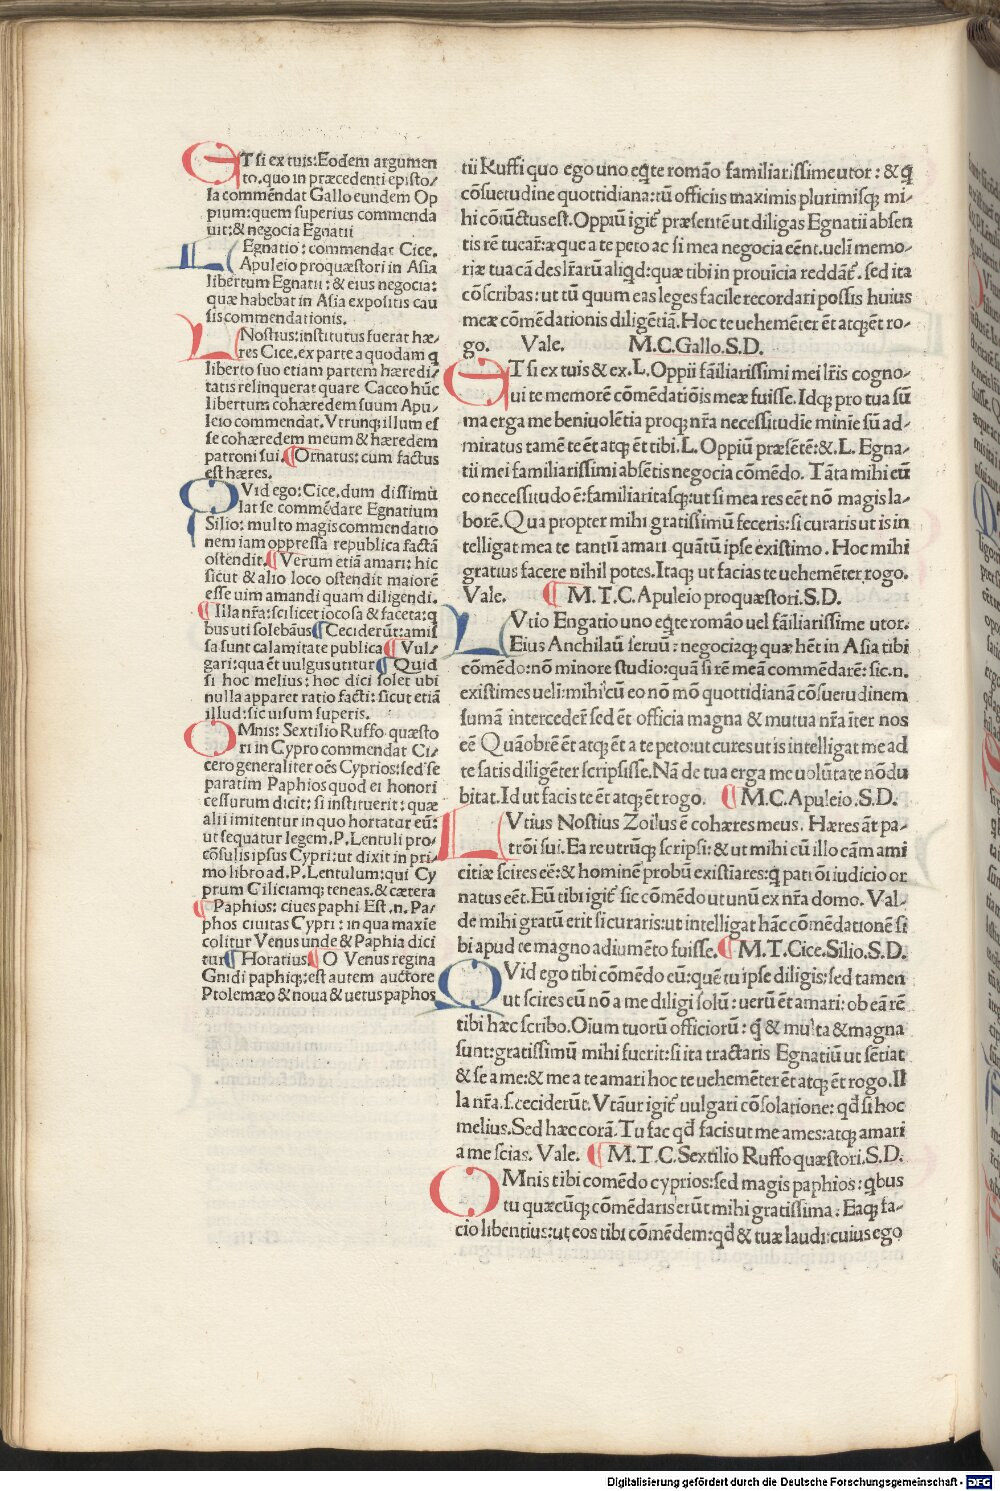 ET si ex tuis: Eodem argumen
to. quo in præcedenti episto/
la commēdat Gallo eundem Op
pium: quem superius commenda
uit: & negocia Egnatii
L Egnatio: commendat Cice.
Apuleio proquæstori in Asia
libertum Egnatii: & eius negocia:
quæ habebat in Asia expositis cau
sis commendationis.
L Nostius: institutus fuerat hæ-
res Cice. ex parte a quodam q
liberto suo etiam partem hæredi/
tatis relinquerat quare Caceo hūc
libertum cohæredem suum Apu/
leio commendat. Vtrunq; illum es
se cohæredem meum & hæredem
patroni sui. ¶Ornatus: cum factus
est hæres.
QVid ego: Cice. dum dissimu
lat se commēdare Egnatium
Silio: multo magis commendatio
nem iam oppressa republica factā
ostendit. ¶Verum etiā amari: hic
sicut & alio loco ostendit maiorē
esse uim amandi quam diligendi.
¶Illa nr̄a: scilicet iocosa & faceta: q
bus uti solebāus ¶Ceciderūt: amis
sa sunt calamitate publica ¶Vul/
gari: qua ēt uulgus utitur ¶Quid
si hoc melius: hoc dici solet ubi
nulla apparet ratio facti: sicut etiā
illud: sic uisum superis.
OMnis: Sextilio Ruffo quæsto
ri in Cypro commendat Ci/
cero generaliter oēs Cyprios: sed se
paratim Paphios quod ei honori
cessurum dicit: si instituerit: quæ
alii imitentur in quo hortatur eū:
ut sequatur legem. P. Lentuli pro/
cōsulis ipsus Cypri: ut dixit in pri/
mo libro ad. P. Lentulum: qui Cy
prum Ciliciamq; teneas. & cætera
¶Paphios: ciues paphi Est. n. Pa/
phos ciuitas Cypri: in qua maxie
colitur Venus unde & Paphia dici
tur ¶Horatius ¶O Venus regina
Gnidi paphiq;: est autem auctore
Ptolemæo & noua & uetus paphos
tii Ruffi quo ego uno eq̄te romāo familiarissime utor: & q
cōsuetudine quottidiana: tū officiis maximis plurimisq; mi-
hi cōiūctus est. Oppiū igit̄ præsentē ut diligas Egnatii absen
tis rē tucar̄: æque a te peto ac si mea negocia eēnt. ueli memo-
riæ tua cā des lr̄arū aliqd: quæ tibi in prouīcia reddāt̄. sed ita
cōscribas: ut tū quum eas leges facile recordari possis huius
meæ cōmēdationis diligētiā. Hoc te uehemēter ēt atq; ēt ro-
go. Vale. M. C. Gallo. S. D.
ET si ex tuis & ex. L. Oppii fāiliarissimi mei lr̄is cogno-
ui te memorē cōmēdatiōis meæ fuisse. Idq; pro tua sū
ma erga me beniuolētia proq; nr̄a necessitudīe minīe sū ad-
miratus tamē te ēt atq; ēt tibi. L. Oppiū præsētē: &. L. Egna-
tii mei familiarissimi absētis negocia cōmēdo. Tāta mihi cū
eo necessitudo ē: familiaritasq;: ut si mea res eēt nō magis la-
borē. Qua propter mihi gratissimū feceris: si curaris ut is in
telligat mea te tantū amari quātū ipse existimo. Hoc mihi
gratius facere nihil potes. Itaq; ut facias te uehemēter rogo.
Vale. ¶ M. T. C. Apuleio proquæstori. S. D.
LVtio Engatio uno eq̄te romāo uel fāiliarissime utor.
Eius Anchilaū seruū: negociaq; quæ hēt in Asia tibi
cōmēdo: nō minore studio: quā si rē meā commēdarē: sic. n.
existimes ueli: mihi cū eo nō mō quottidianā cōsuetudinem
sumā interceder̄ sed ēt officia magna & mutua nr̄a īter nos
eē Quāobrē ēt atq; ēt a te peto: ut cures ut is intelligat me ad
te satis diligēter scripsisse. Nā de tua erga me uolūtate nō du
bitat. Id ut facis te ēt atq; ēt rogo. ¶ M. C. Apuleio. S. D.
LVtius Nostius Zoilus ē cohæres meus. Hæres āt pa-
trōi sui. Ea re utrūq; scripsi: & ut mihi cū illo cām ami
citiæ scires eē: & hominē probū existiares: q pati ōi iudicio or
natus eēt. Eū tibi igit̄ sic cōmēdo ut unū ex nr̄a domo. Val-
de mihi gratū erit si curaris: ut intelligat hāc cōmēdationē si
bi apud te magno adiumēto fuisse. ¶M. T. Cice. Silio. S. D.
QVid ego tibi cōmēdo eū: quē tu ipse diligis: sed tamen
ut scires eū nō a me diligi solū: uerū ēt amari: ob eā rē
tibi hæc scribo. Oium tuorū officiorū: q & multa & magna
sunt: gratissimū mihi fuerit: si ita tractaris Egnatiū ut sētiat
& se a me: & me a te amari hoc te uehemēter ēt atq; ēt rogo. Il
la nr̄a. s. ceciderūt. Vtāur igit̄ uulgari cōsolatione: qd si hoc
melius. Sed hæc corā. Tu fac qd facis ut me ames: atq; amari
a me scias. Vale. ¶M. T. C. Sextilio Ruffo quæstori. S. D.
OMnis tibi comēdo cyprios: sed magis paphios: qbus
tu quæcūq; cōmēdaris erūt mihi gratissima. Eaq; fa-
cio libentius: ut eos tibi cōmēdem: qd & tuæ laudi: cuius ego
Digitalisierung gefördert durch die Deutsche Forschungsgemeinschaft - DFG